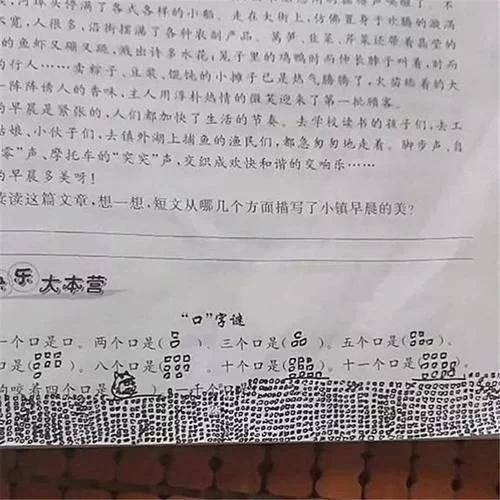 河岸头停满了各式各样的小船。走在大街上,仿佛置身于欢腾的漩涡
宽,人很多,沿街摆满了各种农副产品。莴笋、韭菜、芹菜还带着晶莹的
的鱼虾又蹦又跳,溅出许多水花;笼子里的鸡鸭时而伸长脖子叫着,时而
的行人……卖粽子、豆浆、馄饨的小摊子已是热气腾腾了,大苗
一阵阵诱人的香味,主人用淳朴热情的微笑迎来了第一批顾客。
的早晨是紧张的,人们都加快了生活的节奏。去学校读书的孩子们,去工
姑娘、小伙子们,去镇外湖上捕鱼的渔民们,都急匆匆地走着。脚步声、自
零”声、摩托车的“突突”声,交织成欢快和谐的交响乐……
的早晨多美呀!
读读这篇文章,想一想,短文从哪几个方面描写了小镇早晨的美?
乐大本营
“口”字谜
一个口是口。两个口是( )、三个口是( )。五个口是( )。
口是( )。八个口是( )。十个口是( )。十一个口是( )。
咬着四个口是 。一千个口